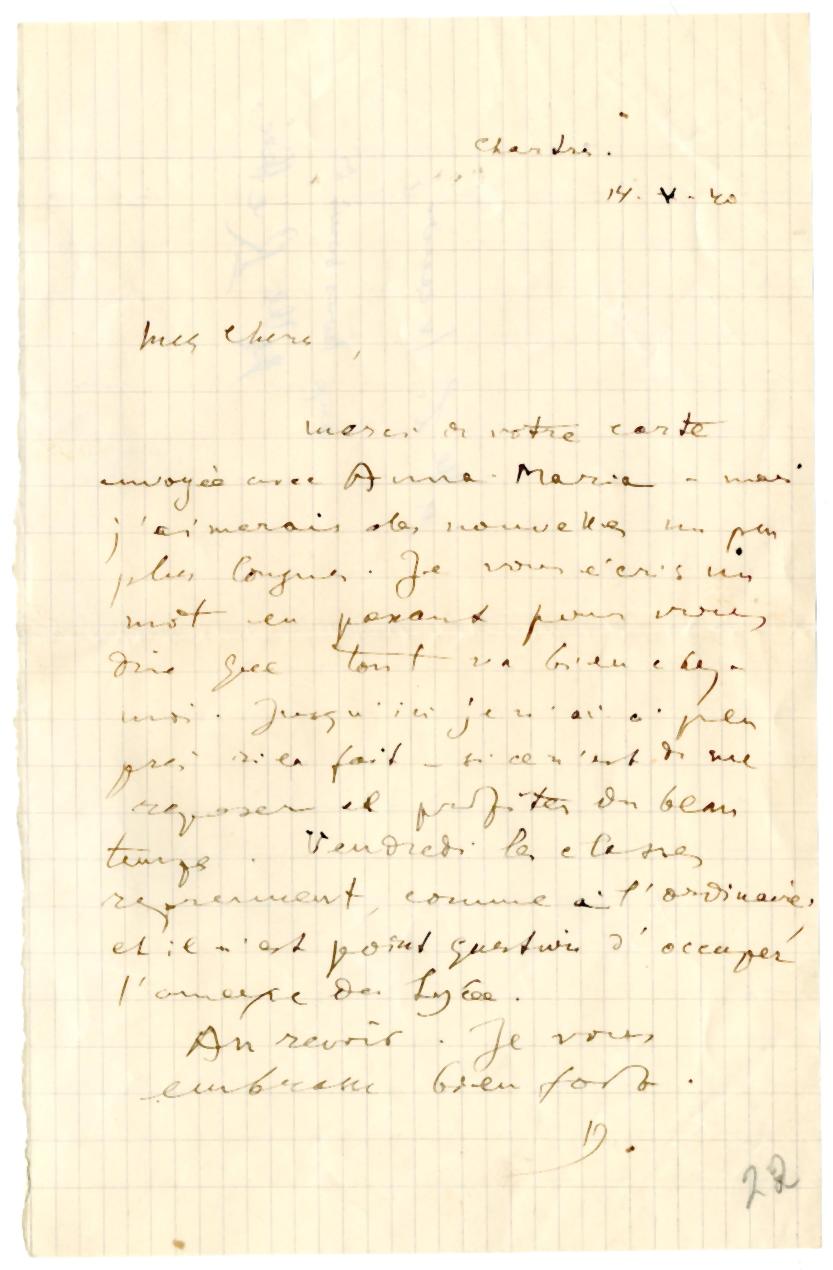 Chartres.
14. V. 40
Mes Chers,
Merci de votre carte
envoyée avec Anna-Maria - mais
j'aimerais des nouvelles un peu
plus longues. Je vous écris un
mot en passant pour vous
dire que tout va bien chez
moi. Jusqu'ici je n'ai à peu
près rien fait - si ce n'est de me
reposer et profiter du beau
temps. Vendredi les classes
reprennent, comme à l'ordinaire,
et il n'est point question d'occuper
l'annexe du Lycée.
Au revoir. Je vous
embrasse bien fort.
D.
22